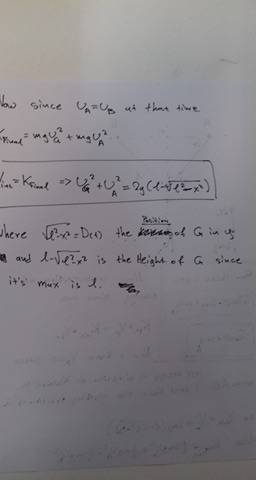 Now since U_A=U_B at that time
K_final = mgU_G^2 + mgU_A^2
=K_final => U_G^2+U_A^2=2g(l-√l²-x²)
where √l²-x²=D(t) the Position of G in y
and l-√l²-x² is the Height of G since
it's max is l.